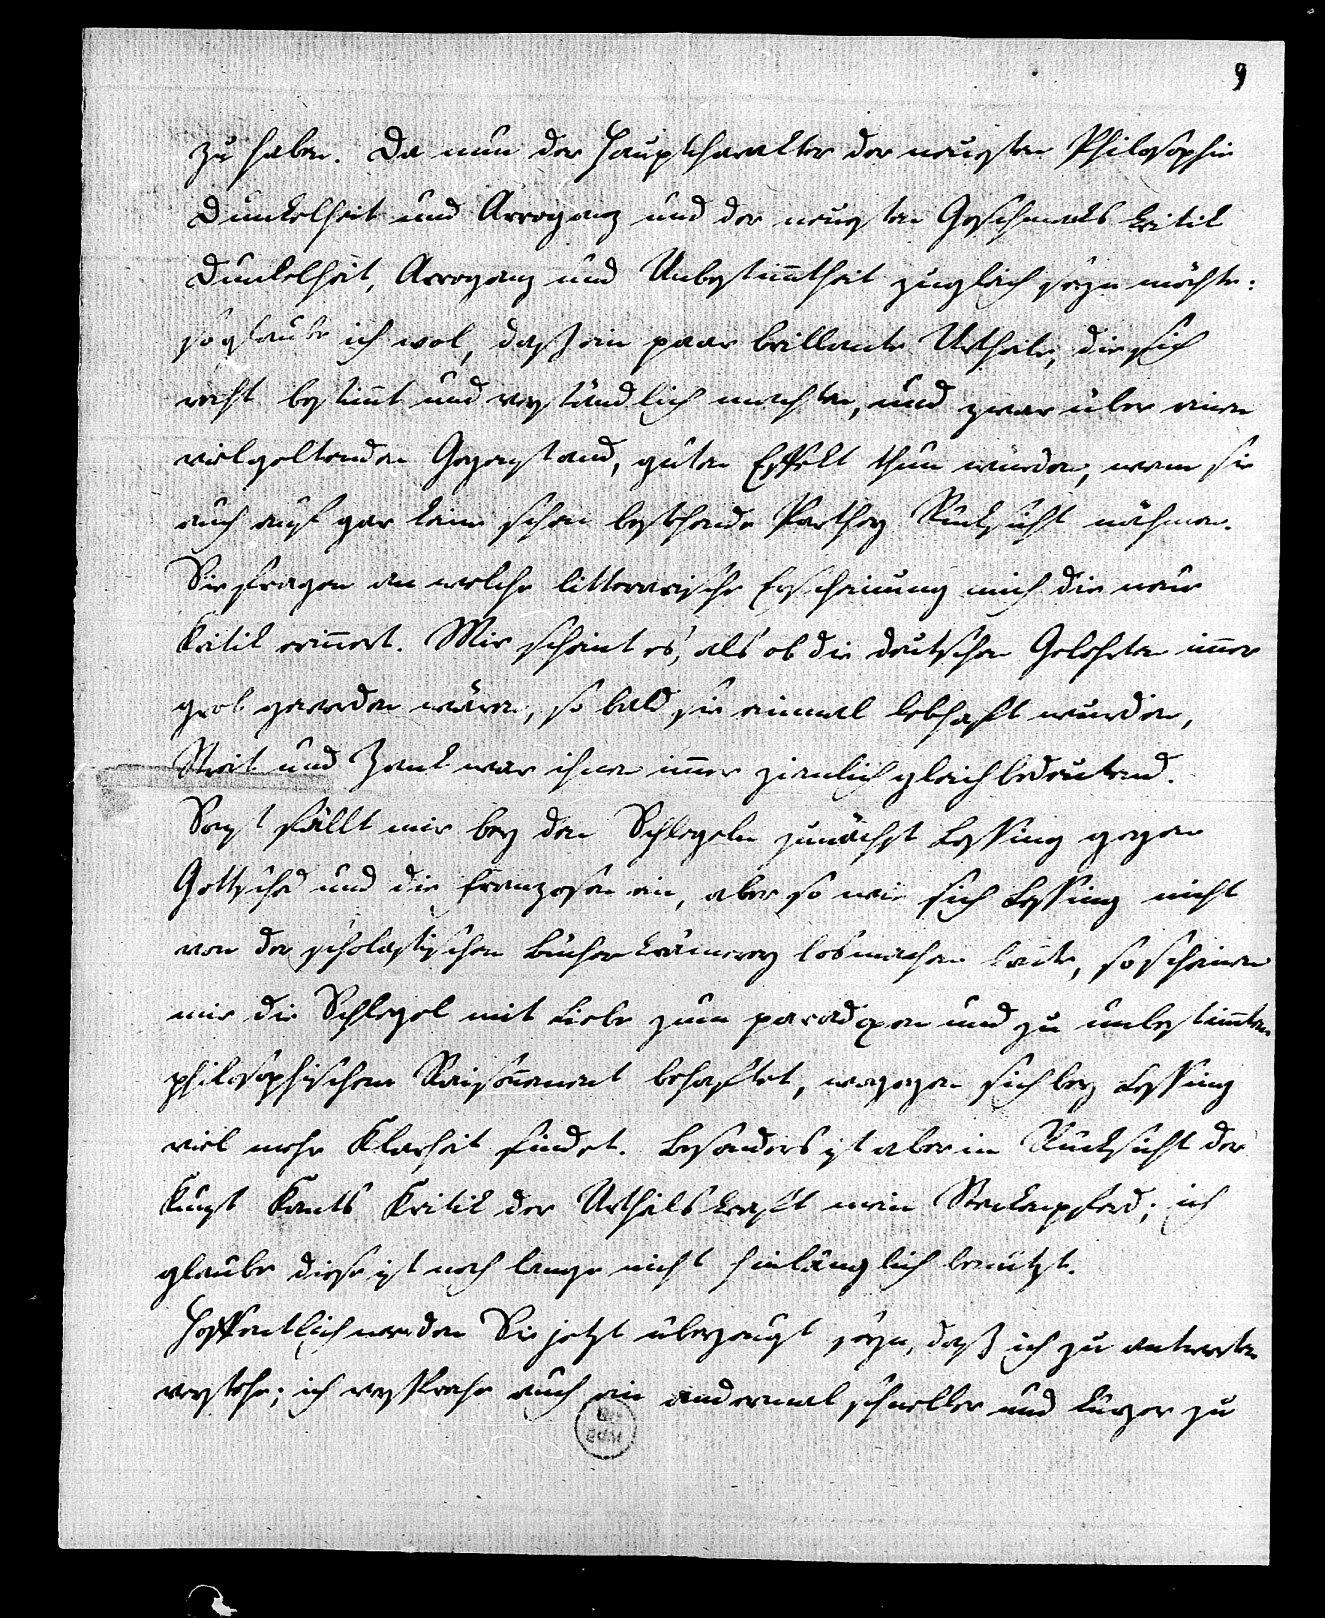 9
zu haben. Da nun der Hauptcharakter der neusten Philosophie
Dunkelheit und Arroganz und der neusten Geschmacks kritik
Dunkelheit, Arroganz und Unbestim̄theit zugleich seyn möchte:
so glaube ich wol, daß ein paar brillante Urtheile, die sich
recht bestim̄t und verständlich machten, und zwar über einen
vielgeltenden Gegenstand, guten Effekt thun würden, wenn sie
auch auf gar keine schon bestehende Parthey Rücksicht nähmen.
Sie fragen an welche litterarische Erscheinung mich die neue
Kritik erin̄ert. Mir scheint es, als ob die deutschen Gelehrten im̄er
grob geworden wären, so bald sie einmal lebhaft wurden,
Streit und Zank war ihnen im̄er ziemlich gleichbedeutend.
Sonst fällt mir bey den Schlegeln zunächst Lessing gegen
Gottsched und die Franzosen ein, aber so wie sich Lessing nicht
von der scholastischen Bücherkrämerey losmachen kon̄te, so scheinen
mir die Schlegel mit Liebe zum paradoxen und zu unbestim̄ten
philosophischem Raisoñement behaftet, wogegen sich bey Lessing
viel mehr Klarheit findet. Besonders ist aber in Rücksicht der
Kunst Kants Kritik der Urtheilskraft mein Steckenpferd; ich
glaube diese ist noch lange nicht hinlänglich benutzt.
Hoffentlich werden Sie jetzt überzeugt seyn, daß ich zu antworten
verstehe; ich verspreche auch ein andermal schneller und kürzer zu